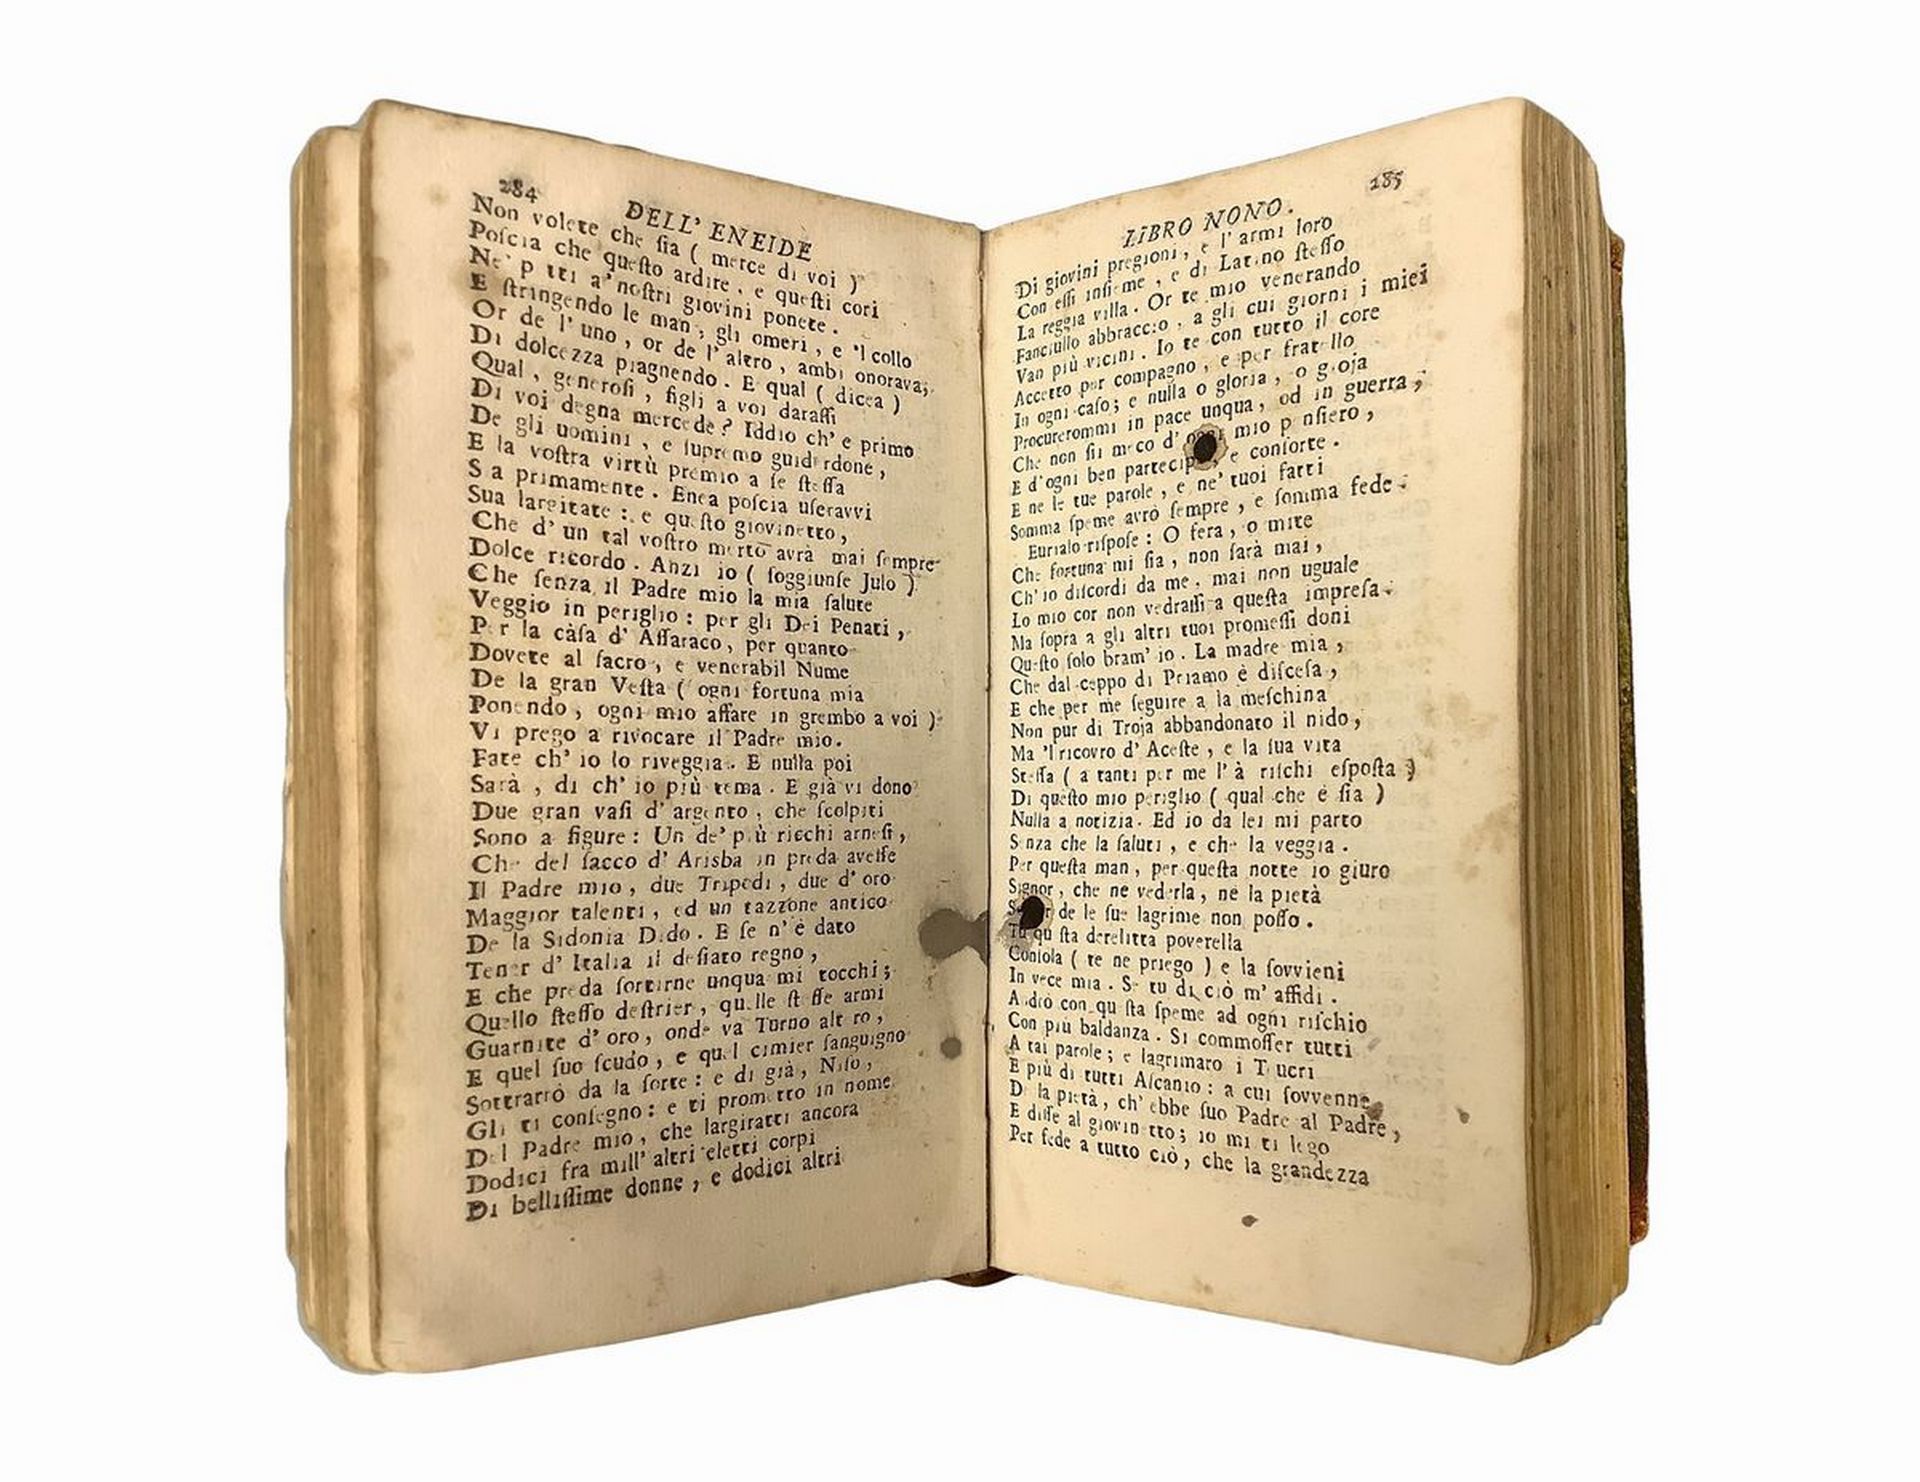 284
DELL' ENEIDE
Non volete che ſia ( merce di voi )
Poſcia che queſto ardire, e queſti cori
Ne' petti a' noſtri giovini ponete.
E ſtringendo le man, gli omeri, e 'l collo
Or de l' uno, or de l' altro, ambi onorava,
Di dolcezza piagnendo. E qual ( dicea )
Qual, generoſi, figli a voi daraſſi
Di voi degna mercede? Iddio ch' e primo
De gli uomini, e ſupremo guiderdone,
E la voſtra virtù premio a ſe ſteſſa
Sia primamente. Enea poſcia uſeravvi
Sua largitate: e queſto giovinetto,
Che d' un tal voſtro merto avrà mai ſempre
Dolce ricordo. Anzi io ( ſoggiunſe Julo )
Che ſenza il Padre mio la mia ſalute
Veggio in periglio: per gli Dei Penati,
Per la càſa d' Aſſaraco, per quanto
Dovete al ſacro, e venerabil Nume
De la gran Veſta ( ogni fortuna mia
Ponendo, ogni mio affare in grembo a voi )
Vi prego a rivocare il Padre mio.
Fate ch' io lo riveggia. E nulla poi
Sarà, di ch' io più tema. E già vi dono
Due gran vaſi d' argento, che ſcolpiti
Sono a figure: Un de' più ricchi arneſi,
Che del ſacco d' Arisba in preda aveſſe
Il Padre mio, due Tripodi, due d' oro
Maggior talenti, ed un tazzone antico
De la Sidonia Dido. E ſe n' è dato
Tener d' Italia il deſiato regno,
E che preda ſortirne unqua mi tocchi;
Quello ſteſſo deſtrier, quelle ſteſſe armi
Guarnite d' oro, onde va Turno altero,
E quel ſuo ſcudo, e quel cimier ſanguigno
Sottrarrò da la ſorte: e di già, Niſo,
Gli ti conſegno: e ti prometto in nome
Del Padre mio, che largiratti ancora
Dodici fra mill' altri eletti corpi
Di belliſſime donne, e dodici altri
285
LIBRO NONO.
Di giovini pregioni, e l' armi loro
Con eſſi inſieme, e di Latino ſteſſo
La reggia villa. Or te mio venerando
Fanciullo abbraccio, a gli cui giorni i miei
Van più vicini. Io te con tutto il core
Accetto per compagno, e per fratello
In ogni caſo; e nulla o gloria, o gioja
Procurerommi in pace unqua, od in guerra,
Che non ſii meco d' ogni mio penſiero,
E d'ogni ben partecipe, e conſorte.
E ne le tue parole, e ne' tuoi fatti
Somma ſpeme avrò ſempre, e ſomma fede.
Eurialo riſpoſe: O fera, o mite
Che fortuna mi ſia, non ſarà mai,
Ch' io diſcordi da me. mai non uguale
Lo mio cor non vedraſſi a queſta impreſa.
Ma ſopra a gli altri tuoi promeſſi doni
Queſto ſolo bram' io. La madre mia,
Che dal ceppo di Priamo è diſceſa,
E che per me ſeguire a la meſchina
Non pur di Troja abbandonato il nido,
Ma 'l ricovro d' Aceſte, e la ſua vita
Steſſa ( a tanti per me l' à riſchi eſpoſta )
Di queſto mio periglio ( qual che e ſia )
Nulla a notizia. Ed io da lei mi parto
Senza che la ſaluti, e che la veggia.
Per queſta man, per queſta notte io giuro
Signor, che ne vederla, ne la pietà
de le ſue lagrime non poſſo.
Tu queſta derelitta poverella
Conſola ( te ne priego ) e la ſovvieni
In vece mia. Se tu di ciò m' affidi.
Andrò con queſta ſpeme ad ogni riſchio
Con più baldanza. Si commoſſer tutti
A tai parole; e lagrimaro i Teucri
E più di tutti Aſcanio: a cui ſovvenne
De la pietà, ch' ebbe ſuo Padre al Padre,
E diſſe al giovinetto; io mi ti lego
Per fede a tutto ciò, che la grandezza